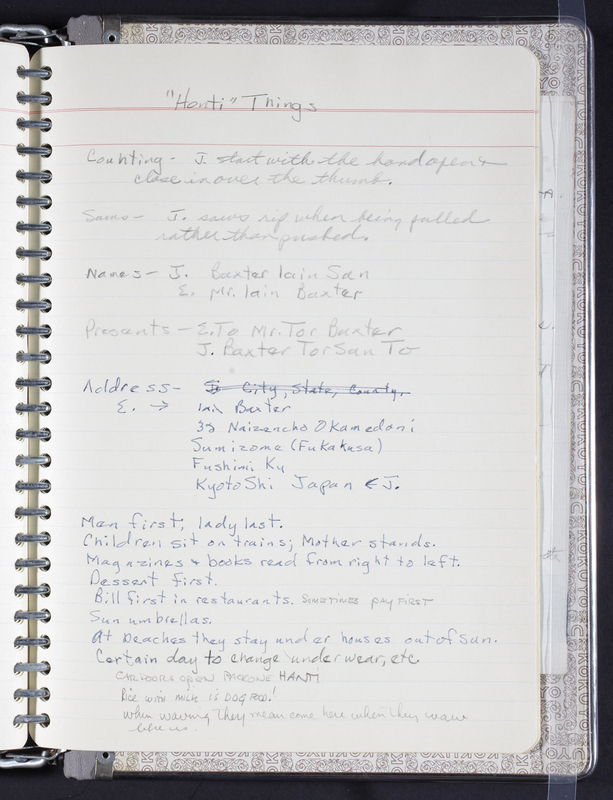 "Honti" Things
Counting - J. start with the hand open &
close in over the thumb.
Saws - J. saws rip when being pulled
rather than pushed.
Names - J. Baxter Iain San
E. Mr. Iain Baxter
Presents - E. To Mr. Tor Baxter
J. Baxter Tor San To
Address - City, State, County,
E. → Iain Baxter
Naizencho Okamedani
Sumizome (Fukakusa)
Fushimi Ku
Kyoto Shi Japan ← J.
Men first; lady last.
Children sit on trains; Mother stands.
Magazines & books read from right to left.
Dessert first.
Bill first in restaurants. SOMETIMES PAY FIRST
Sun umbrellas.
At beaches they stay under houses out of sun.
Certain day to change underwear, etc.
CAR DOORS OPEN HANTI
Rice with milk is DOG FOOD!
When waving they mean come here when they wave
bye us.